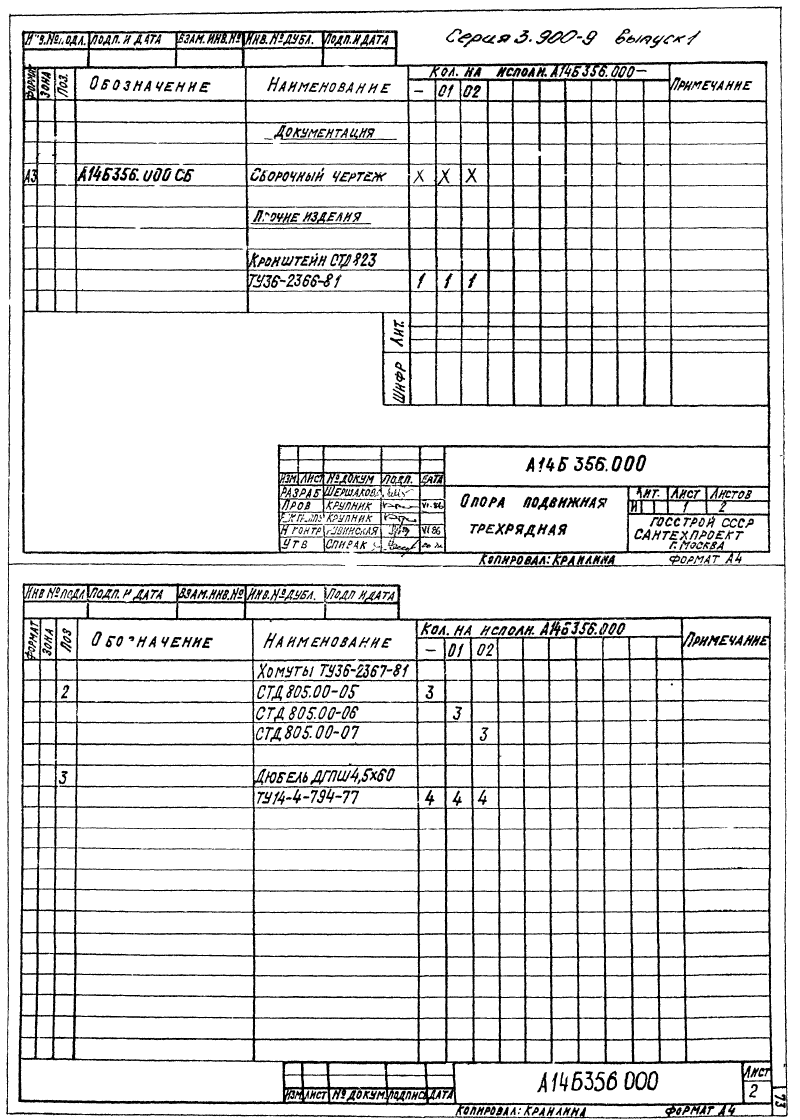 Серия 3.900-9 выпуск 1
ПОДП. И ДАТА ВЗАМ. ИНВ.№ ИНВ.№ ДУБЛ. ПОДП. И ДАТА
ЗОНА ПОЗ. ОБОЗНАЧЕНИЕ НАИМЕНОВАНИЕ КОЛ. НА ИСПОЛН. А14Б356.000— ПРИМЕЧАНИЕ
— 01 02
ДОКУМЕНТАЦИЯ
А3 А14Б356.000 СБ СБОРОЧНЫЙ ЧЕРТЕЖ X X X
ПРОЧИЕ ИЗДЕЛИЯ
КРОНШТЕЙН СТД 823
ТУ36-2366-81 1 1 1
ЛИТ.
ШИФР
А14Б 356.000
ИЗМ ЛИСТ № ДОКУМ ПОДП. ДАТА
РАЗРАБ ШЕРШАКОВА
ПРОВ КРУПНИК VI.86
КРУПНИК
Н КОНТР VI 86
УТВ СПИВАК
ОПОРА ПОДВИЖНАЯ
ТРЕХРЯДНАЯ
ЛИТ. ЛИСТ ЛИСТОВ
И 1 2
ГОССТРОЙ СССР
САНТЕХПРОЕКТ
Г. МОСКВА
КОПИРОВАЛ: КРАИЛИНА ФОРМАТ А4
ИНВ № ПОДЛ ПОДП. И ДАТА ВЗАМ. ИНВ.№ ИНВ.№ ДУБЛ. ПОДП И ДАТА
ФОРМАТ ЗОНА ПОЗ ОБОЗНАЧЕНИЕ НАИМЕНОВАНИЕ КОЛ. НА ИСПОЛН. А14Б356.000 ПРИМЕЧАНИЕ
— 01 02
ХОМУТЫ ТУ36-2367-81
2 СТД 805.00-05 3
СТД 805.00-06 3
СТД 805.00-07 3
3 ДЮБЕЛЬ ДГПШ 4,5х60
ТУ14-4-794-77 4 4 4
А14Б356 000
ЛИСТ
2
ИЗМ ЛИСТ № ДОКУМ. ПОДПИСЬ ДАТА
КОПИРОВАЛ: КРАИЛИНА ФОРМАТ А4
73